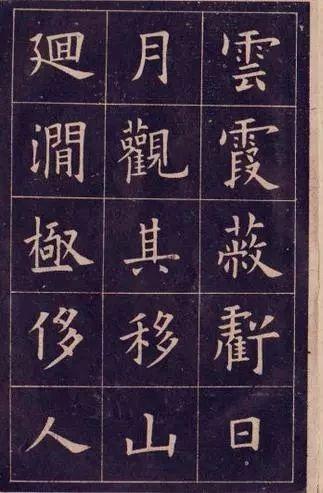 雲霞蔽虧日
月觀其移山
廻澗極侈人